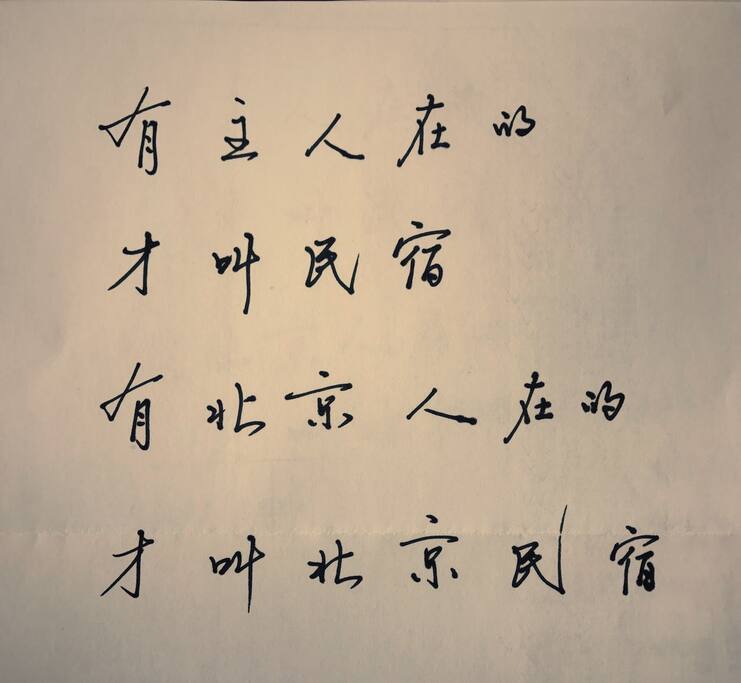 有主人在的
才叫民宿
有北京人在的
才叫北京民宿